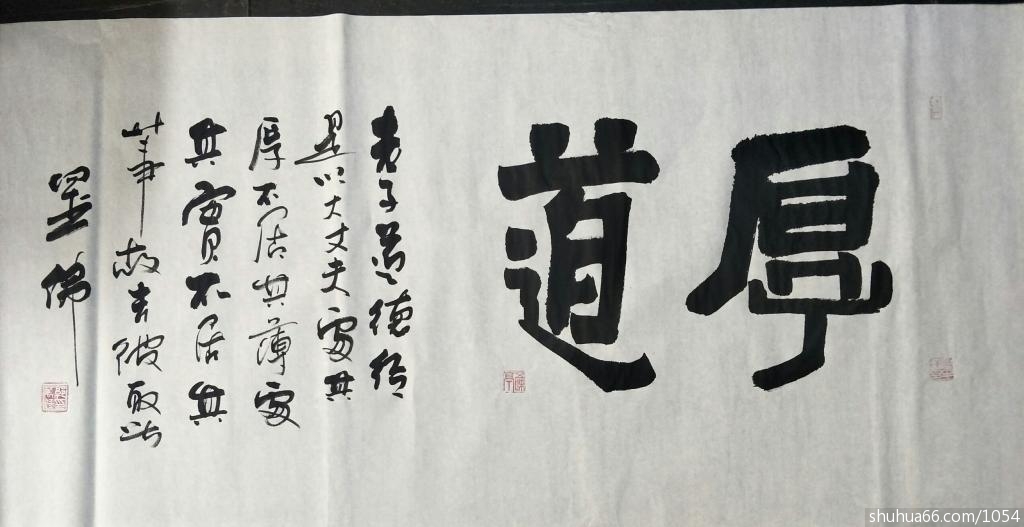 厚道
老子道德经
是以大丈夫處其
厚不居其薄處
其實不居其
華故去彼取此
墨佛
shuhua66.com/1054